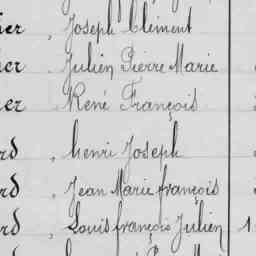 ier , Joseph Clément
ier , Julien Pierre Marie
ier René François
rd , henri Joseph
rd , Jean Marie françois
rd , Louis françois Julien 1
rd